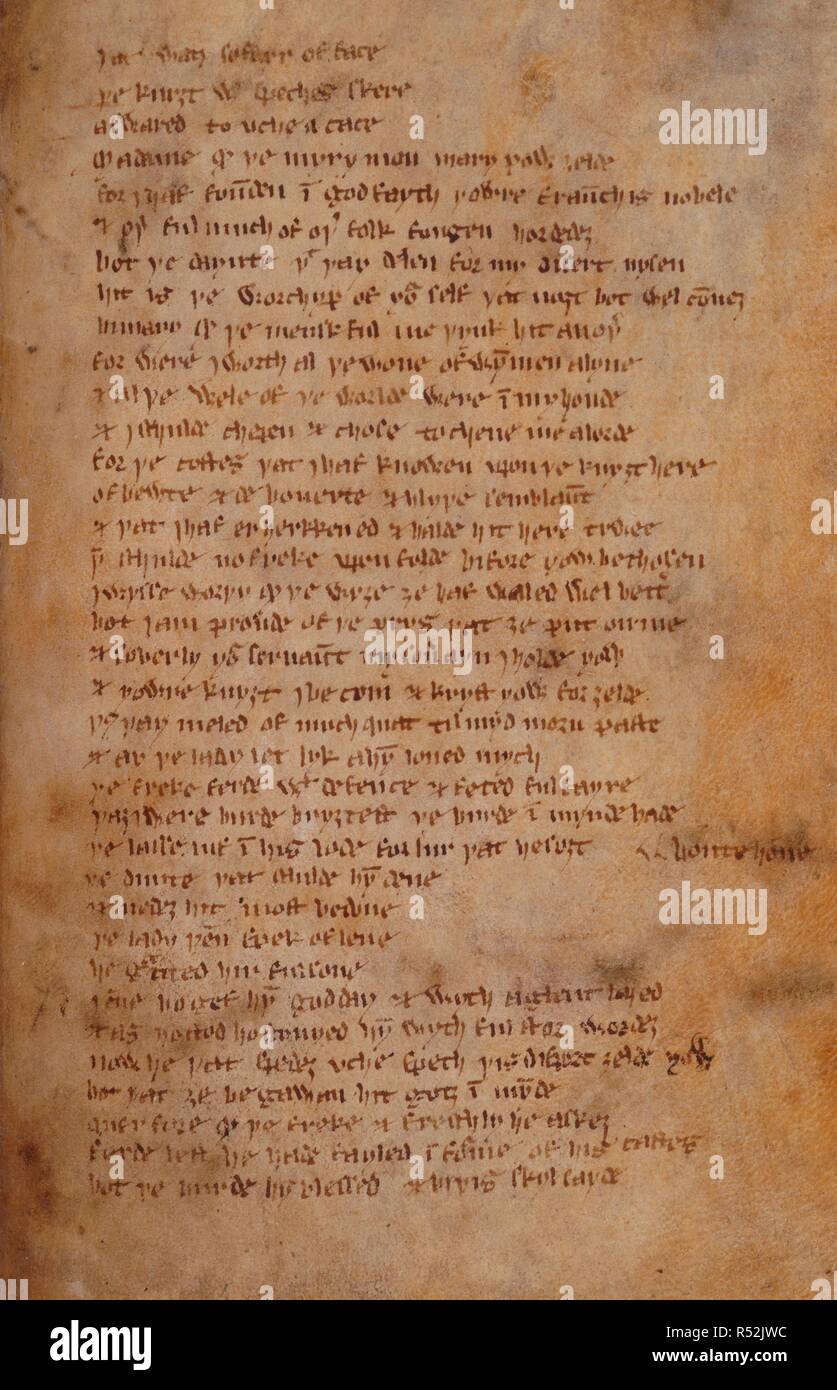 þat watz so fayr of face
þe knyȝt wᵗ speches skere
aswared to vche a cace
Madame qᵈ þe myry mon mary yow ȝelde
for I haf founden ī god fayth yowre fraūchis nobele
& oþ̉ ful much of oþ̉ folk fongen hor dedez
bot þe daynte þᵗ þay delen for my disert nysen
hit is þe worchyp of yoself þat noȝt bot wel cōnez
bi mary qᵈ þe menskful me þynk hit an oþ̉
for were I worth al þe wone of wȳmen alyue
& al þe wele of þe worlde were ī my honde
& I schulde chepen & chose to cheue me a lorde
for þe costes þat I haf knowen vpon þe knyȝt here
of bewte & debonerte & blyþe semblaūt
& þat I haf er herkkened & halde hit here trwee
þ̉ schulde no freke vpon folde bifore yow be chosen
I wysse worþy qᵈ þe wyȝe ȝe haf waled wel bett̉
bot I am proude of þe prys þat ȝe put on me
& soberly yoʳ seruaūt my souerayn I holde yow
& yowre knyȝt I becom & kryst yow forȝelde
þᵘs þay meled of muchquat til mydmorn paste
& ay þe lady let lyk a hȳ loued mych
þe freke ferde wᵗ defence & feted ful fayre
þaȝ I were burde bryȝtest þe burde ī mynde hade
þe lasse luf ī his lode for lur þat he soȝt boute hone
þe dunte þat schulde hȳ deue
& nedez hit most be done
þe lady þēn spek of leue
he gᵃnted hir ful sone
þēne ho gef hȳ god day & wyth a glent laȝed
& as ho stod ho stonyed hȳ wyth ful stor wordez
now he þat spedez vche spech þis disport ȝelde yow
bot þat ȝe be gawan hit gotz ī mȳde
quer fore qᵈ þe freke & freschly he askez
ferde lest he hade fayled ī fo͞me of his castes
bot þe burde hȳ blessed & bi þis skyl sayde
alamy stock photo
alamy
Image ID: R52JWC
www.alamy.com